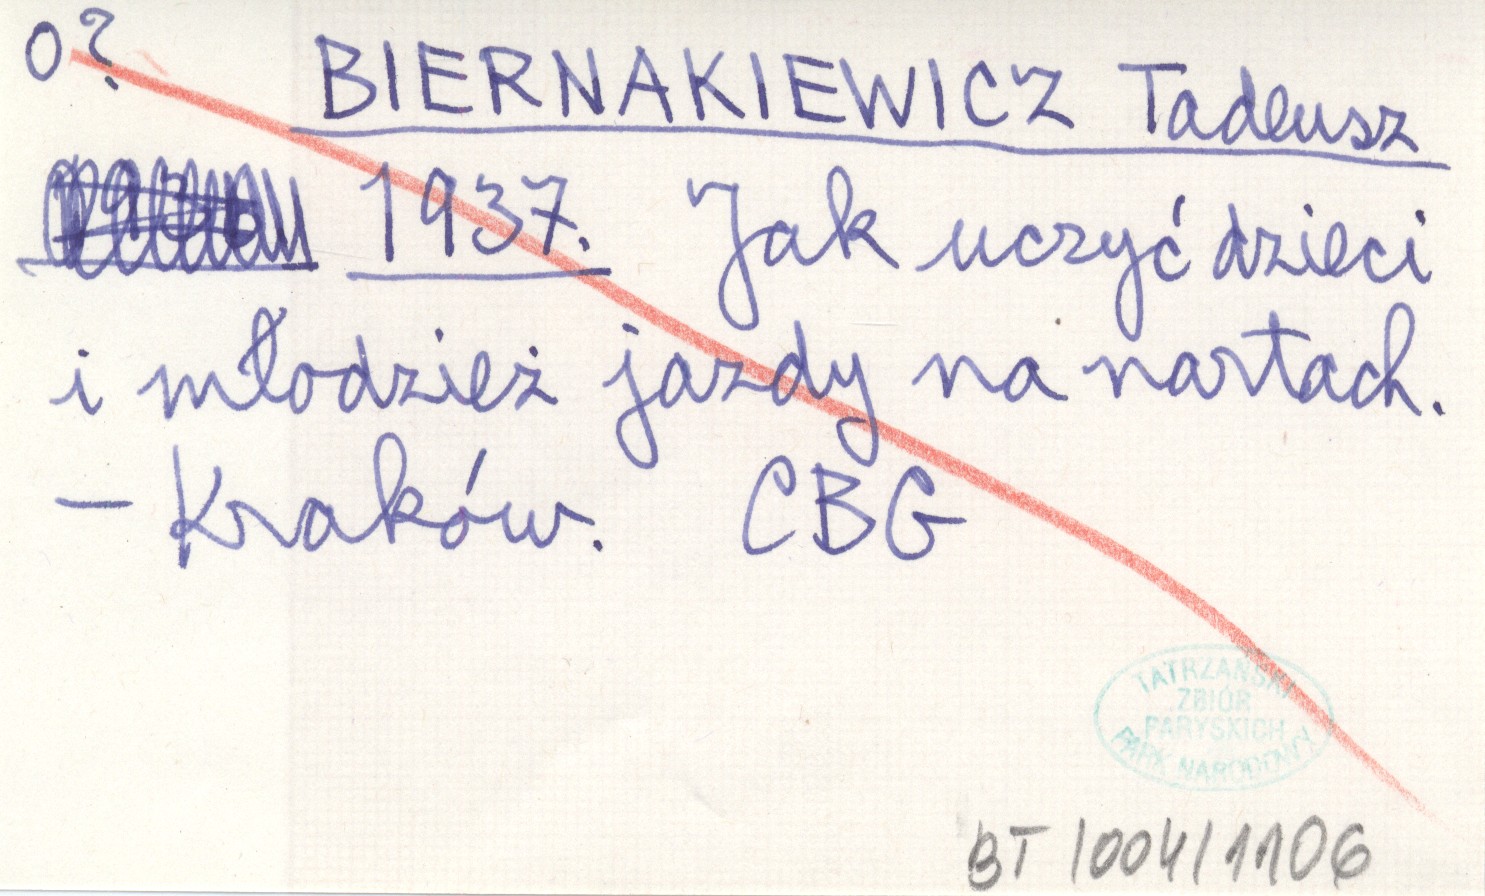 o? BIERNAKIEWICZ Tadeusz
1937. Jak uczyć dzieci
i młodzież jazdy na nartach.
– Kraków. CBG
TATRZAŃSKI
ZBIÓR
PARYSKICH
PARK NARODOWY
BT /004/1106